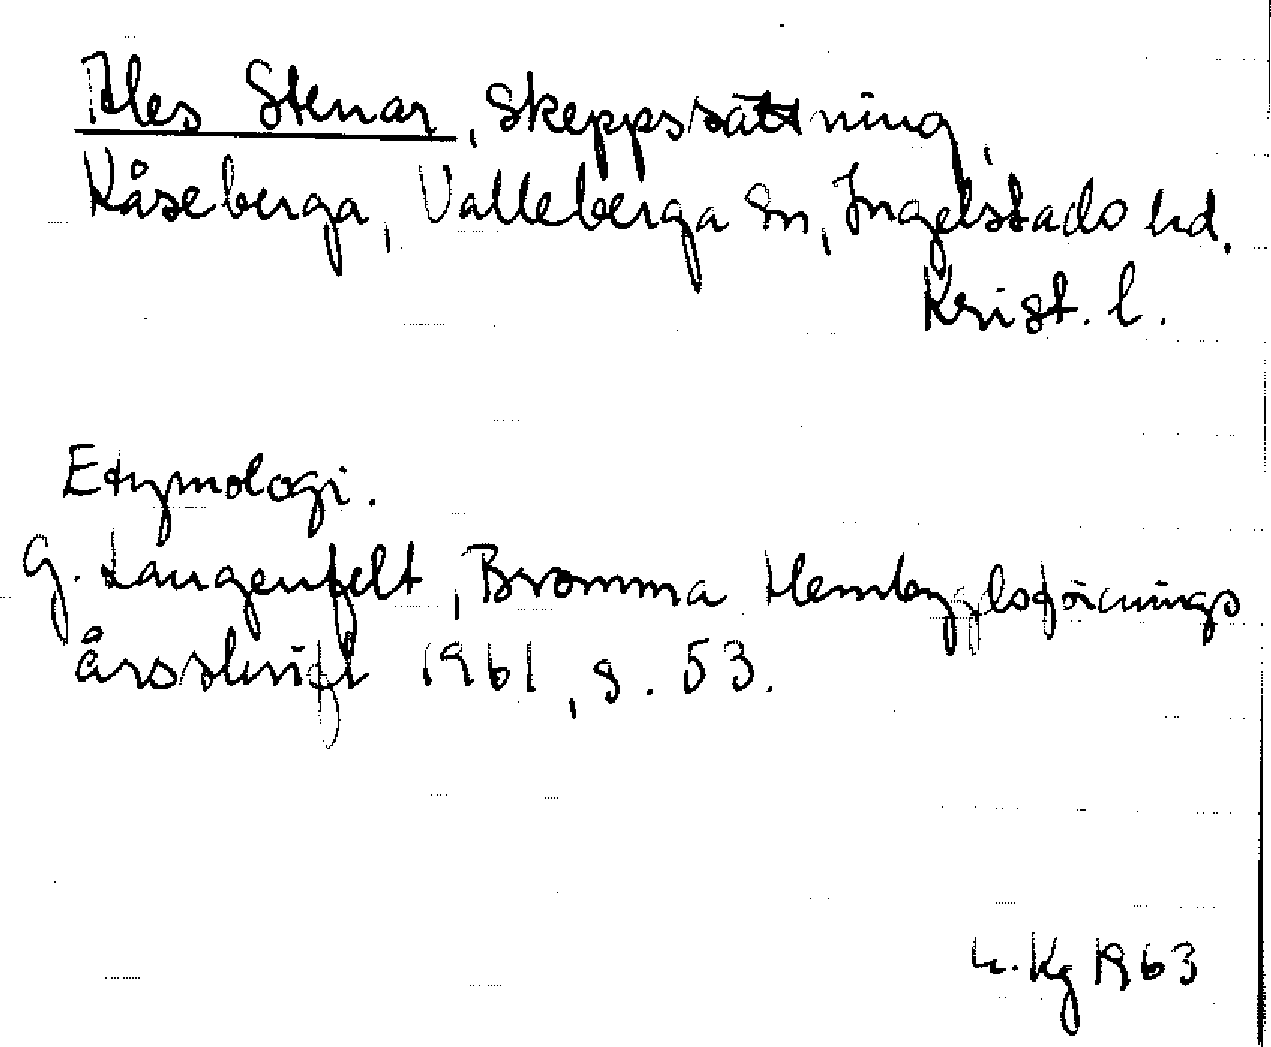 Ales Stenar, Skeppssättning,
Kåseberga, Valleberga sn, Ingelstads hd.
Krist. l.
Etymologi.
G. Langenfelt, Bromma Hembygdsförenings
årsskrift 1961, s. 53.
Kg 1963